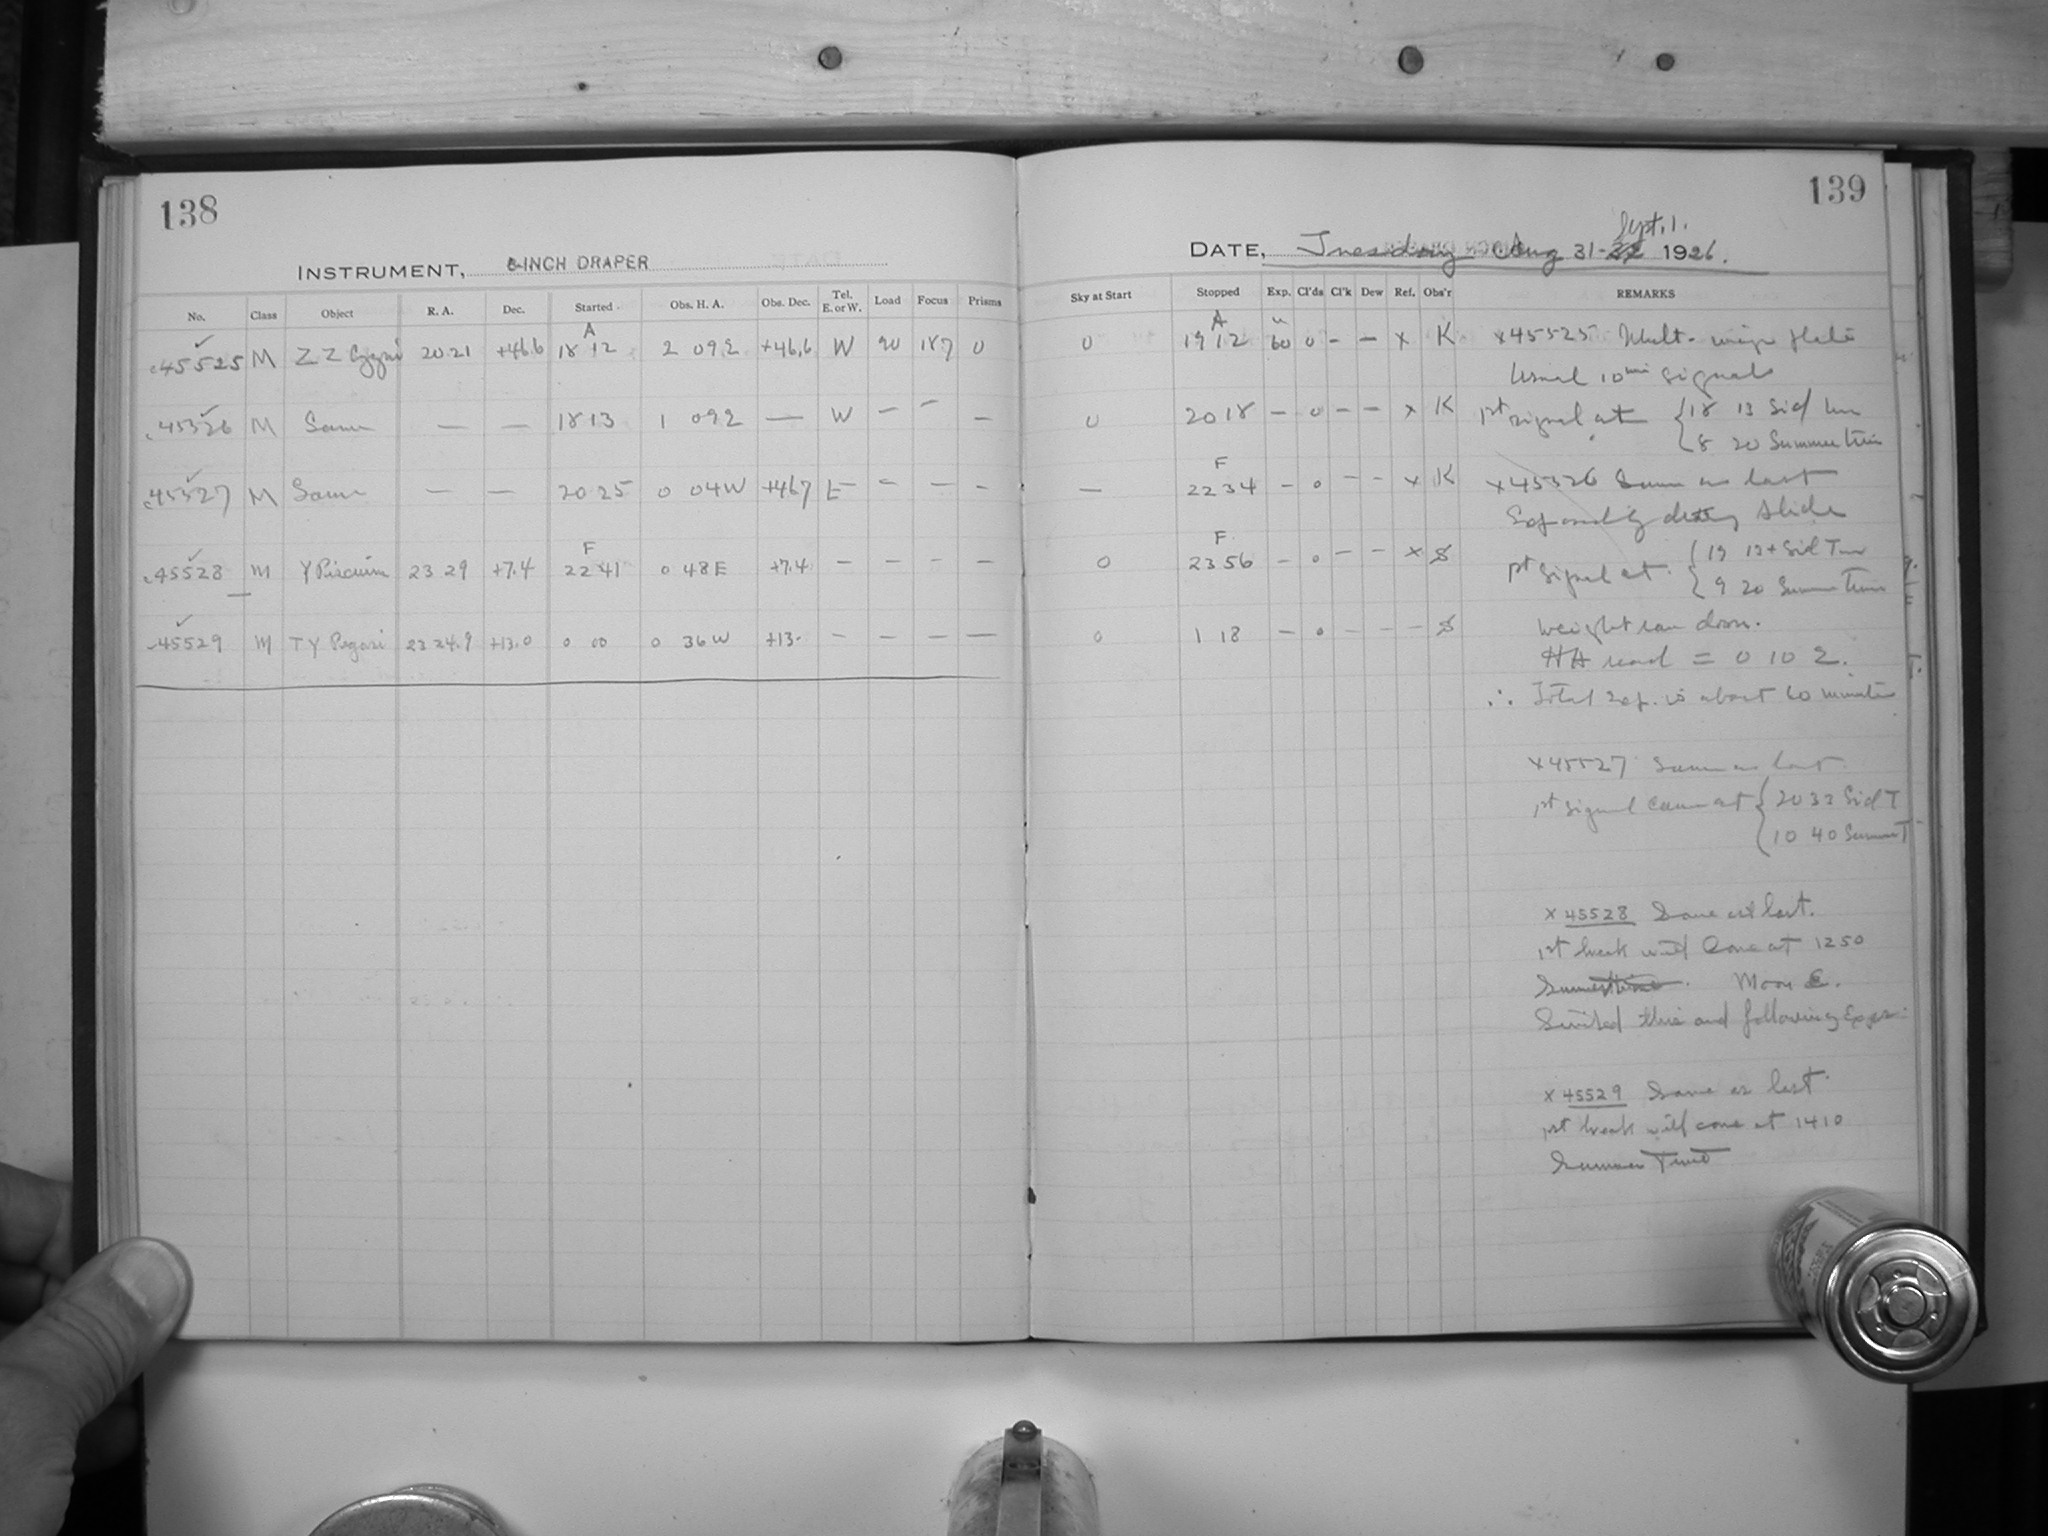 138
INSTRUMENT, 8-INCH DRAPER
No. Class Object R. A. Dec. Started Obs. H. A. Obs. Dec. Tel. E. or W. Load Focus Prisms
45525 M ZZ Cygni 20 21 +46.6 A 18 12 2 09 E +46.6 W 90 187 0
45526 M Same — — 18 13 1 09 E — W — — —
45527 M Same — — 20 25 0 04 W +46.7 E — — —
45528 M Y Piscium 23 29 +7.4 F 22 41 0 48 E +7.4 — — — —
45529 M TY Pegasi 23 24.9 +13.0 0 00 0 36 W +13. — — — —
139
DATE, Tuesday Aug 31- Sept. 1. 1926.
Sky at Start Stopped Exp. Cl'ds Cl'k Dew Ref. Obs'r REMARKS
0 A 19 12 60 0 — — x K x45525 Mult. image plate
Usual 10 min signals
0 20 18 — 0 — — x K 1st signal at { 18 13 Sid
8 20 Summer time
— F 22 34 — 0 — — x K x45526 Same as last
slide
0 F 23 56 — 0 — — x S 1st signal at { 19 13+ Sid Time
9 20 Summer Time
0 1 18 — 0 — — — S Weight ran down.
HA read = 0 10 E.
∴ Total exp. is about 60 minutes
x45527 Same as last
1st signal came at { 20 33 Sid T
10 40 Summer T
x 45528 Same as last.
1st break will come at 1250
Summertime. Moon E.
this and following Expos.
x 45529 Same as last.
1st break will come at 1410
Summer Time